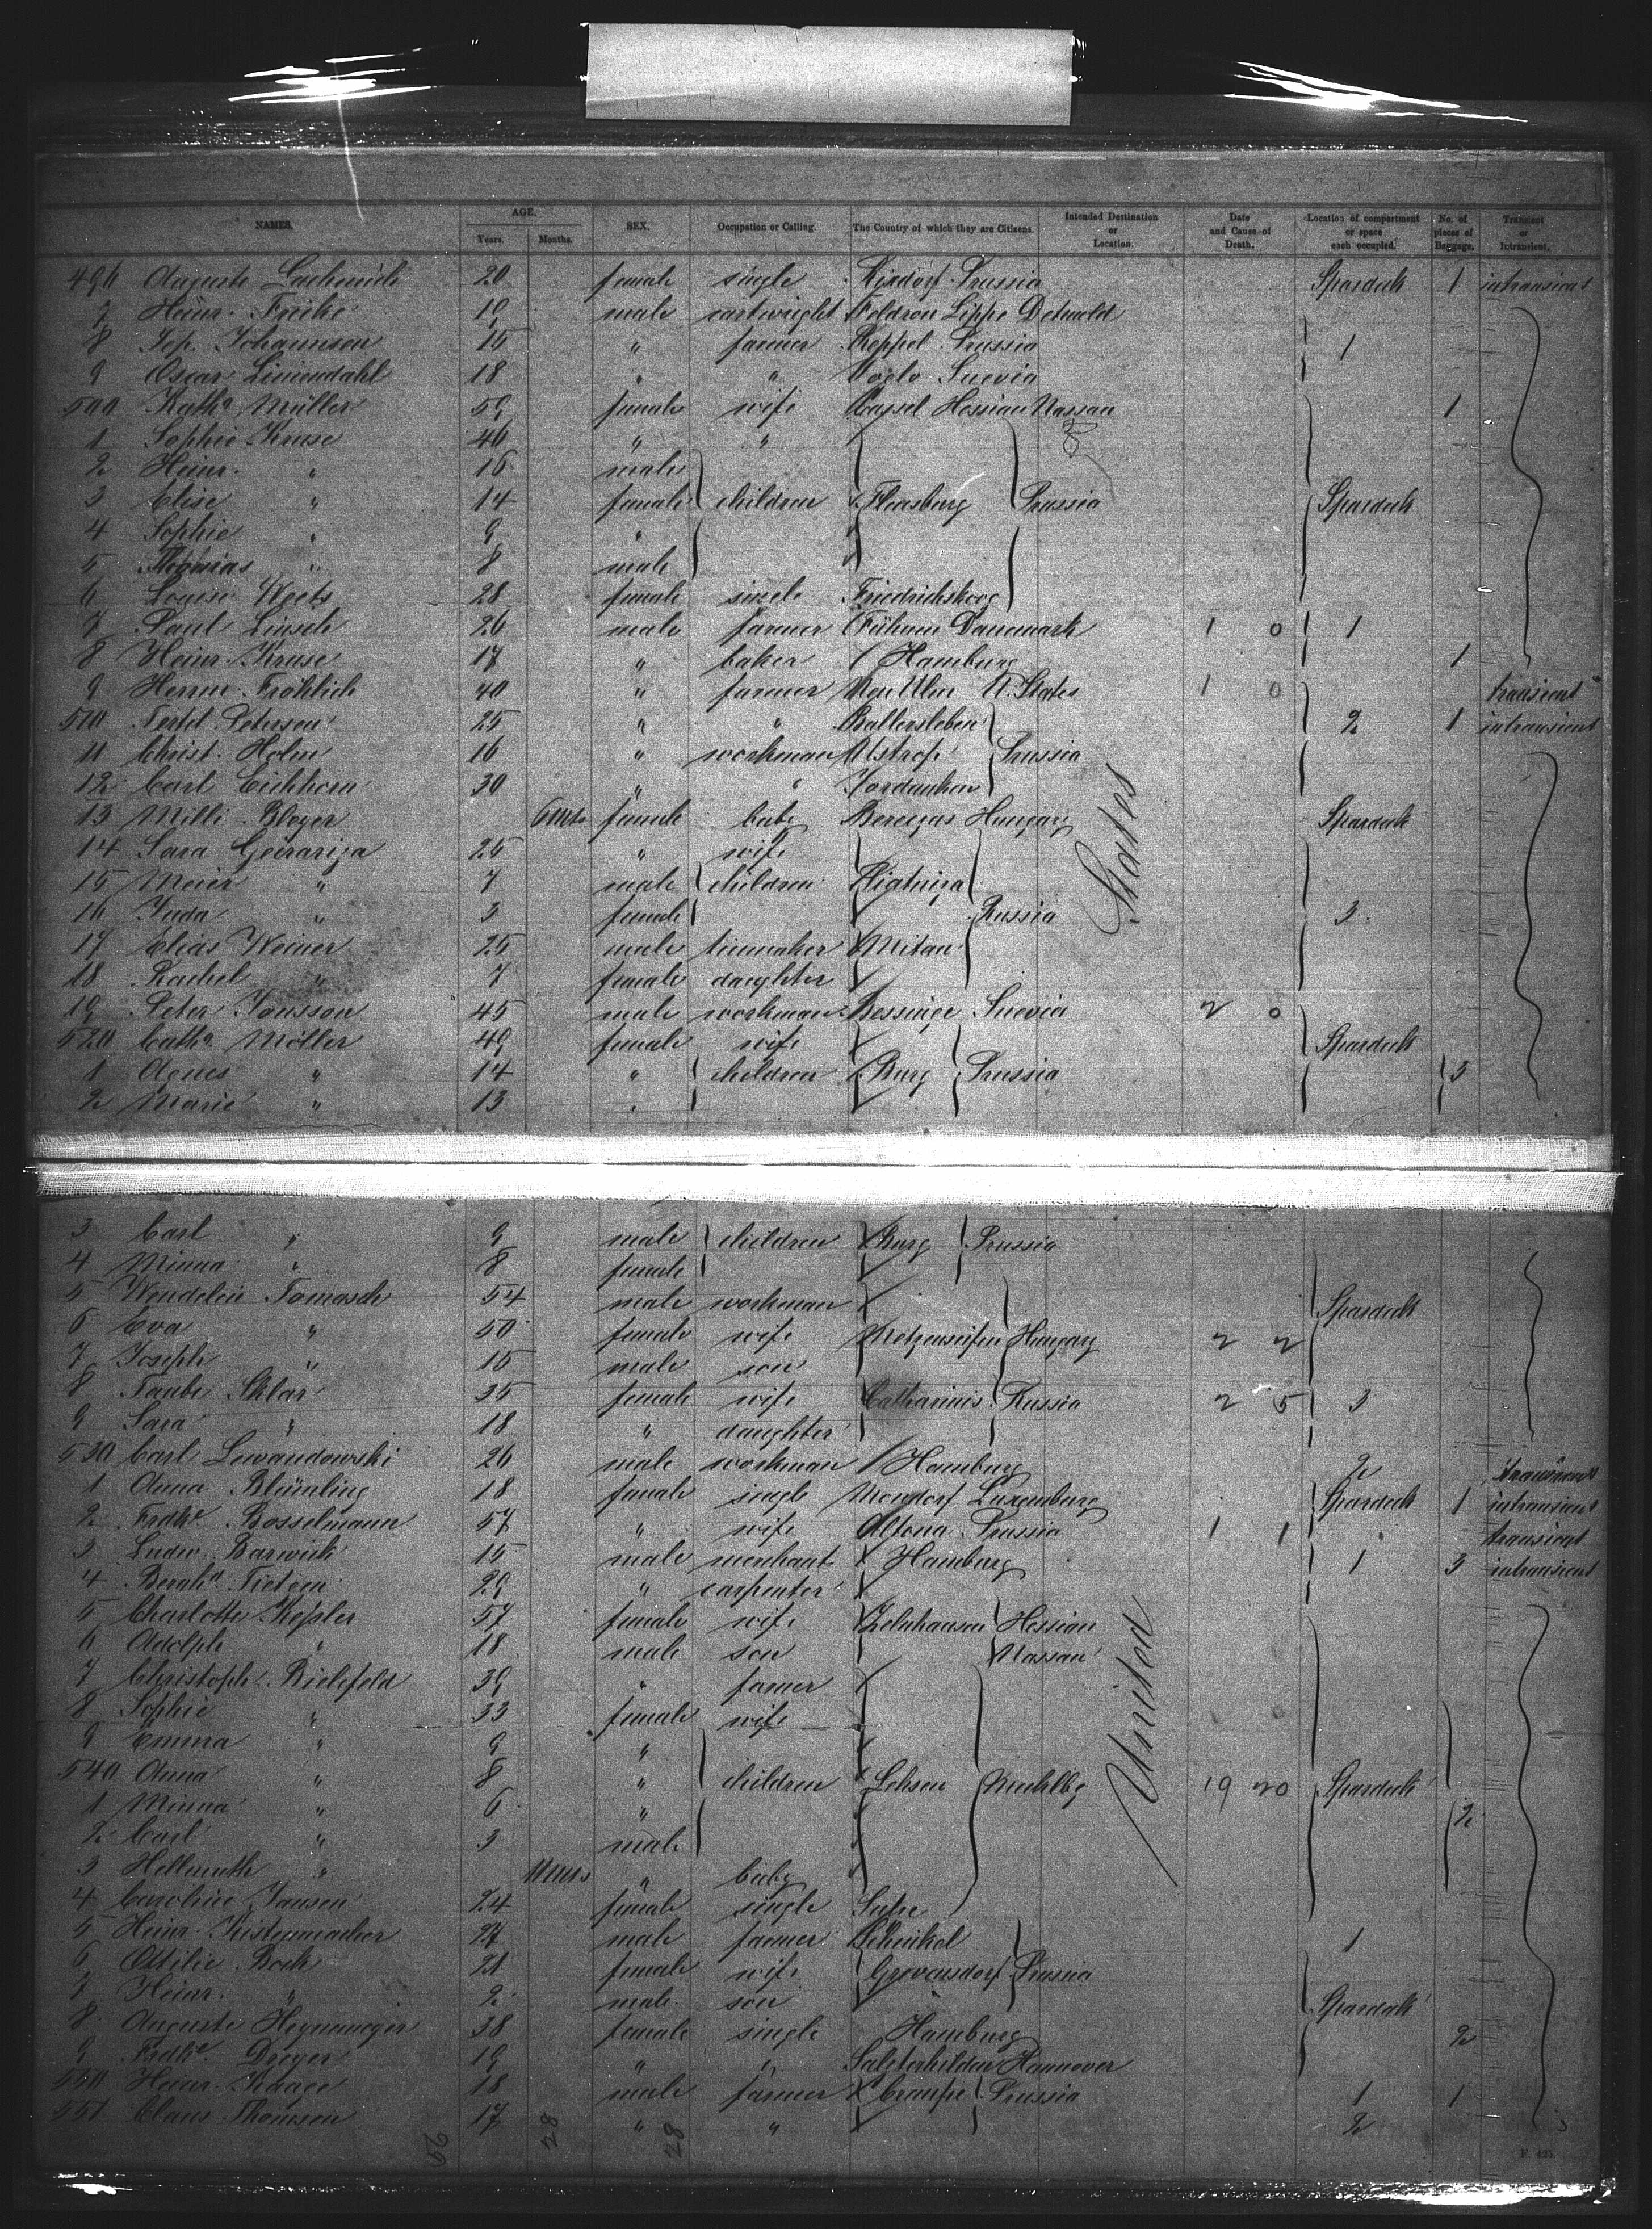 NAMES. AGE. SEX. Occupation or Calling. The Country of which they are Citizens. Intended Destination or Location. Date and Cause of Death. Location of compartment or space each occupied. No. of pieces of Baggage. Transient or Intransient.
Years. Months.
496 Auguste 20 female single Rixdorf Prussia Spardeck 1 intransient
7 Heinr. Fricke 19 male cartwright Lippe Detmold
8 Jep. Johannsen 15 " farmer Reppel Prussia 1
9 Oscar Liniendahl 18 " " Suevia
500 Kath⁠a Müller 59 female wife Cassel Hessian Nassau 1
1 Sophie Kruse 46 " "
2 Heinr. " 16 male
3 Elise " 14 female children Flensburg Prussia Spardeck
4 Sophie " 9 "
5 Thomas " 8 male
6 Louise 28 female single Friedrichskoog
7 Paul Linsch 26 male farmer Danemark 1 0 1
8 Heinr. Kruse 17 " baker Hamburg 1
9 Herm. Fröhlich 40 " farmer Neu Ulm U. States 1 0 transient
510 Petersen 25 " " Ballersleben 2 1 intransient
11 Christ. Holm 16 " workman Ulstrop Prussia
12 Carl Eichhorn 30 " " Jordanken
13 Milli Bleyer 6 mts female babe Hungary Spardeck
14 Sara 25 " wife
15 Meier " 7 male children
16 Juda " 3 female Russia 3
17 Elias Weiner 25 male tinmaker Mitau
18 Rachel " 7 female daughter
19 Peter Jonsson 45 male workman Bessinge Suevia 2 0
520 Cath⁠a Möller 49 female wife Spardeck
1 Agnes " 14 " children Burg Prussia 3
2 Marie " 13 "
States
3 Carl " 9 male children Burg Prussia
4 Minna " 8 female
5 Wendelin Tomasch 54 male workman Spardeck
6 Eva " 50 female wife Metzenseifen Hungary 2 2
7 Joseph " 15 male son
8 Taube Sklar 35 female wife Russia 2 5 3
9 Sara " 18 " daughter
530 Carl Lewandowski 26 male workman Hamburg 2 transient
1 Anna Blümling 18 female single Mondorf Luxemburg Spardeck 1 intransient
2 Frdke Bosselmann 57 " wife Altona Prussia 1 1 transient
3 Ludw. Barwick 15 male merchant Hamburg 1 3 intransient
4 Tietgen 29 " carpenter
5 Charlotte Kessler 57 female wife Gelnhausen Hessian
6 Adolph " 18 male son Nassau
7 Christoph Bielefeld 39 " farmer
8 Sophie " 33 female wife
9 Emma " 9 "
540 Anna " 8 " children Lehsen Mecklbg 19 20 Spardeck
1 Minna " 6 " 2
2 Carl " 3 male
3 Hellmuth " 11 mts " babe
4 Caroline Jansen 24 female single
5 Heinr. Kistenmacher 27 male farmer Schinkel 1
6 Ottilie Bock 21 female wife Grevensdorf Prussia
7 Heinr. " 2 male son Spardeck
8 Auguste Heynemeyer 38 female single Hamburg 2
9 Frdke Dreyer 19 " " Salzderhelden Hannover
550 Heinr. Kaage 18 male farmer Prussia 1 1
551 Claus Thomsen 17 " " 2
United
28 28
F. 425